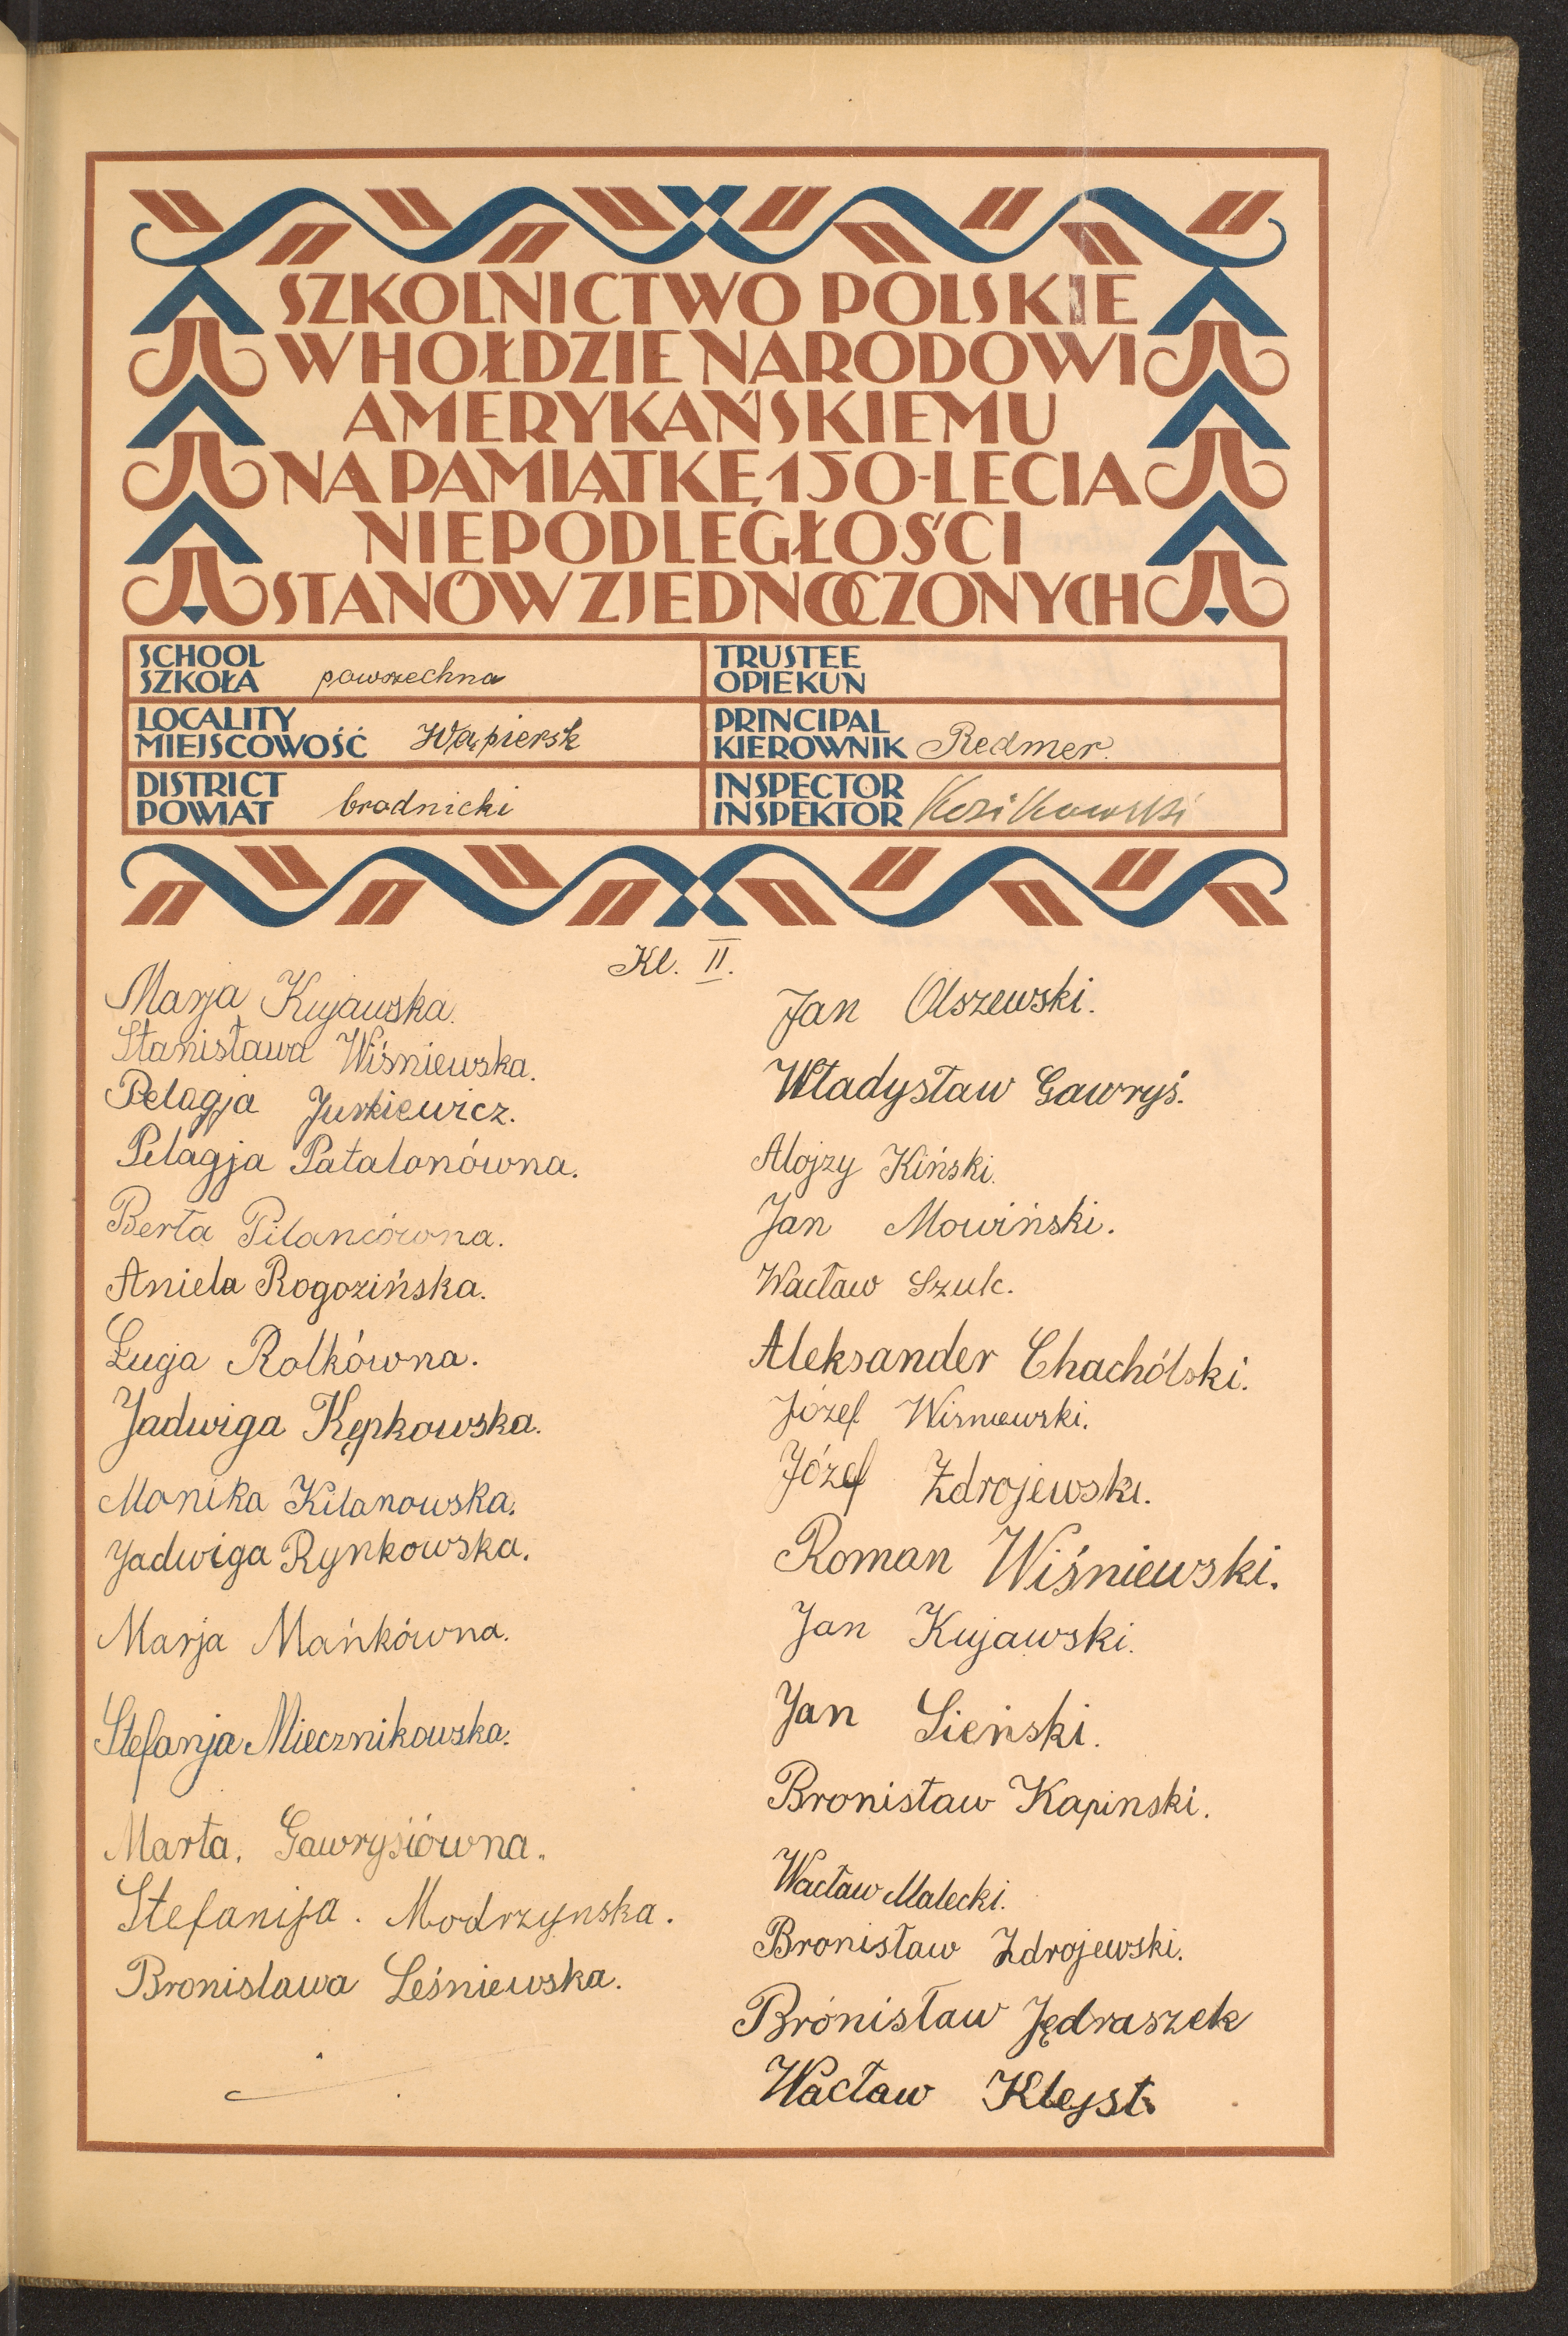 SZKOLNICTWO POLSKIE
W HOŁDZIE NARODOWI
AMERYKAŃSKIEMU
NA PAMIĄTKĘ 150-LECIA
NIEPODLEGŁOŚCI
STANÓW ZJEDNOCZONYCH
SCHOOL
SZKOŁA powszechna
TRUSTEE
OPIEKUN
LOCALITY
MIEJSCOWOŚĆ Wąpiersk
PRINCIPAL
KIEROWNIK Redmer.
DISTRICT
POWIAT brodnicki
INSPECTOR
INSPEKTOR Kozikowski
Kl. II.
Marja Kujawska.
Stanisława Wiśniewska.
Pelagja Jurkiewicz.
Pelagja Patalonówna.
Berta Pilancówna.
Aniela Rogozińska.
Łucja Rolkówna.
Jadwiga Kępkowska.
Monika Kilanowska.
Jadwiga Rynkowska.
Marja Mańkówna.
Stefanja Miecznikowska.
Marta. Gawrysiówna.
Stefanija. Modrzynska.
Bronislawa Leśniewska.
Jan Olszewski.
Władysław Gawryś.
Alojzy Kiński.
Jan Mowiński.
Wacław Szulc.
Aleksander Chachólski.
Józef Wisniewski.
Józef Zdrojewski.
Roman Wiśniewski.
Jan Kujawski.
Jan Lieński.
Bronisław Kapinski.
Wacław Malecki.
Bronisław Zdrojewski.
Brónisław Jędraszek
Wacław Klejst.